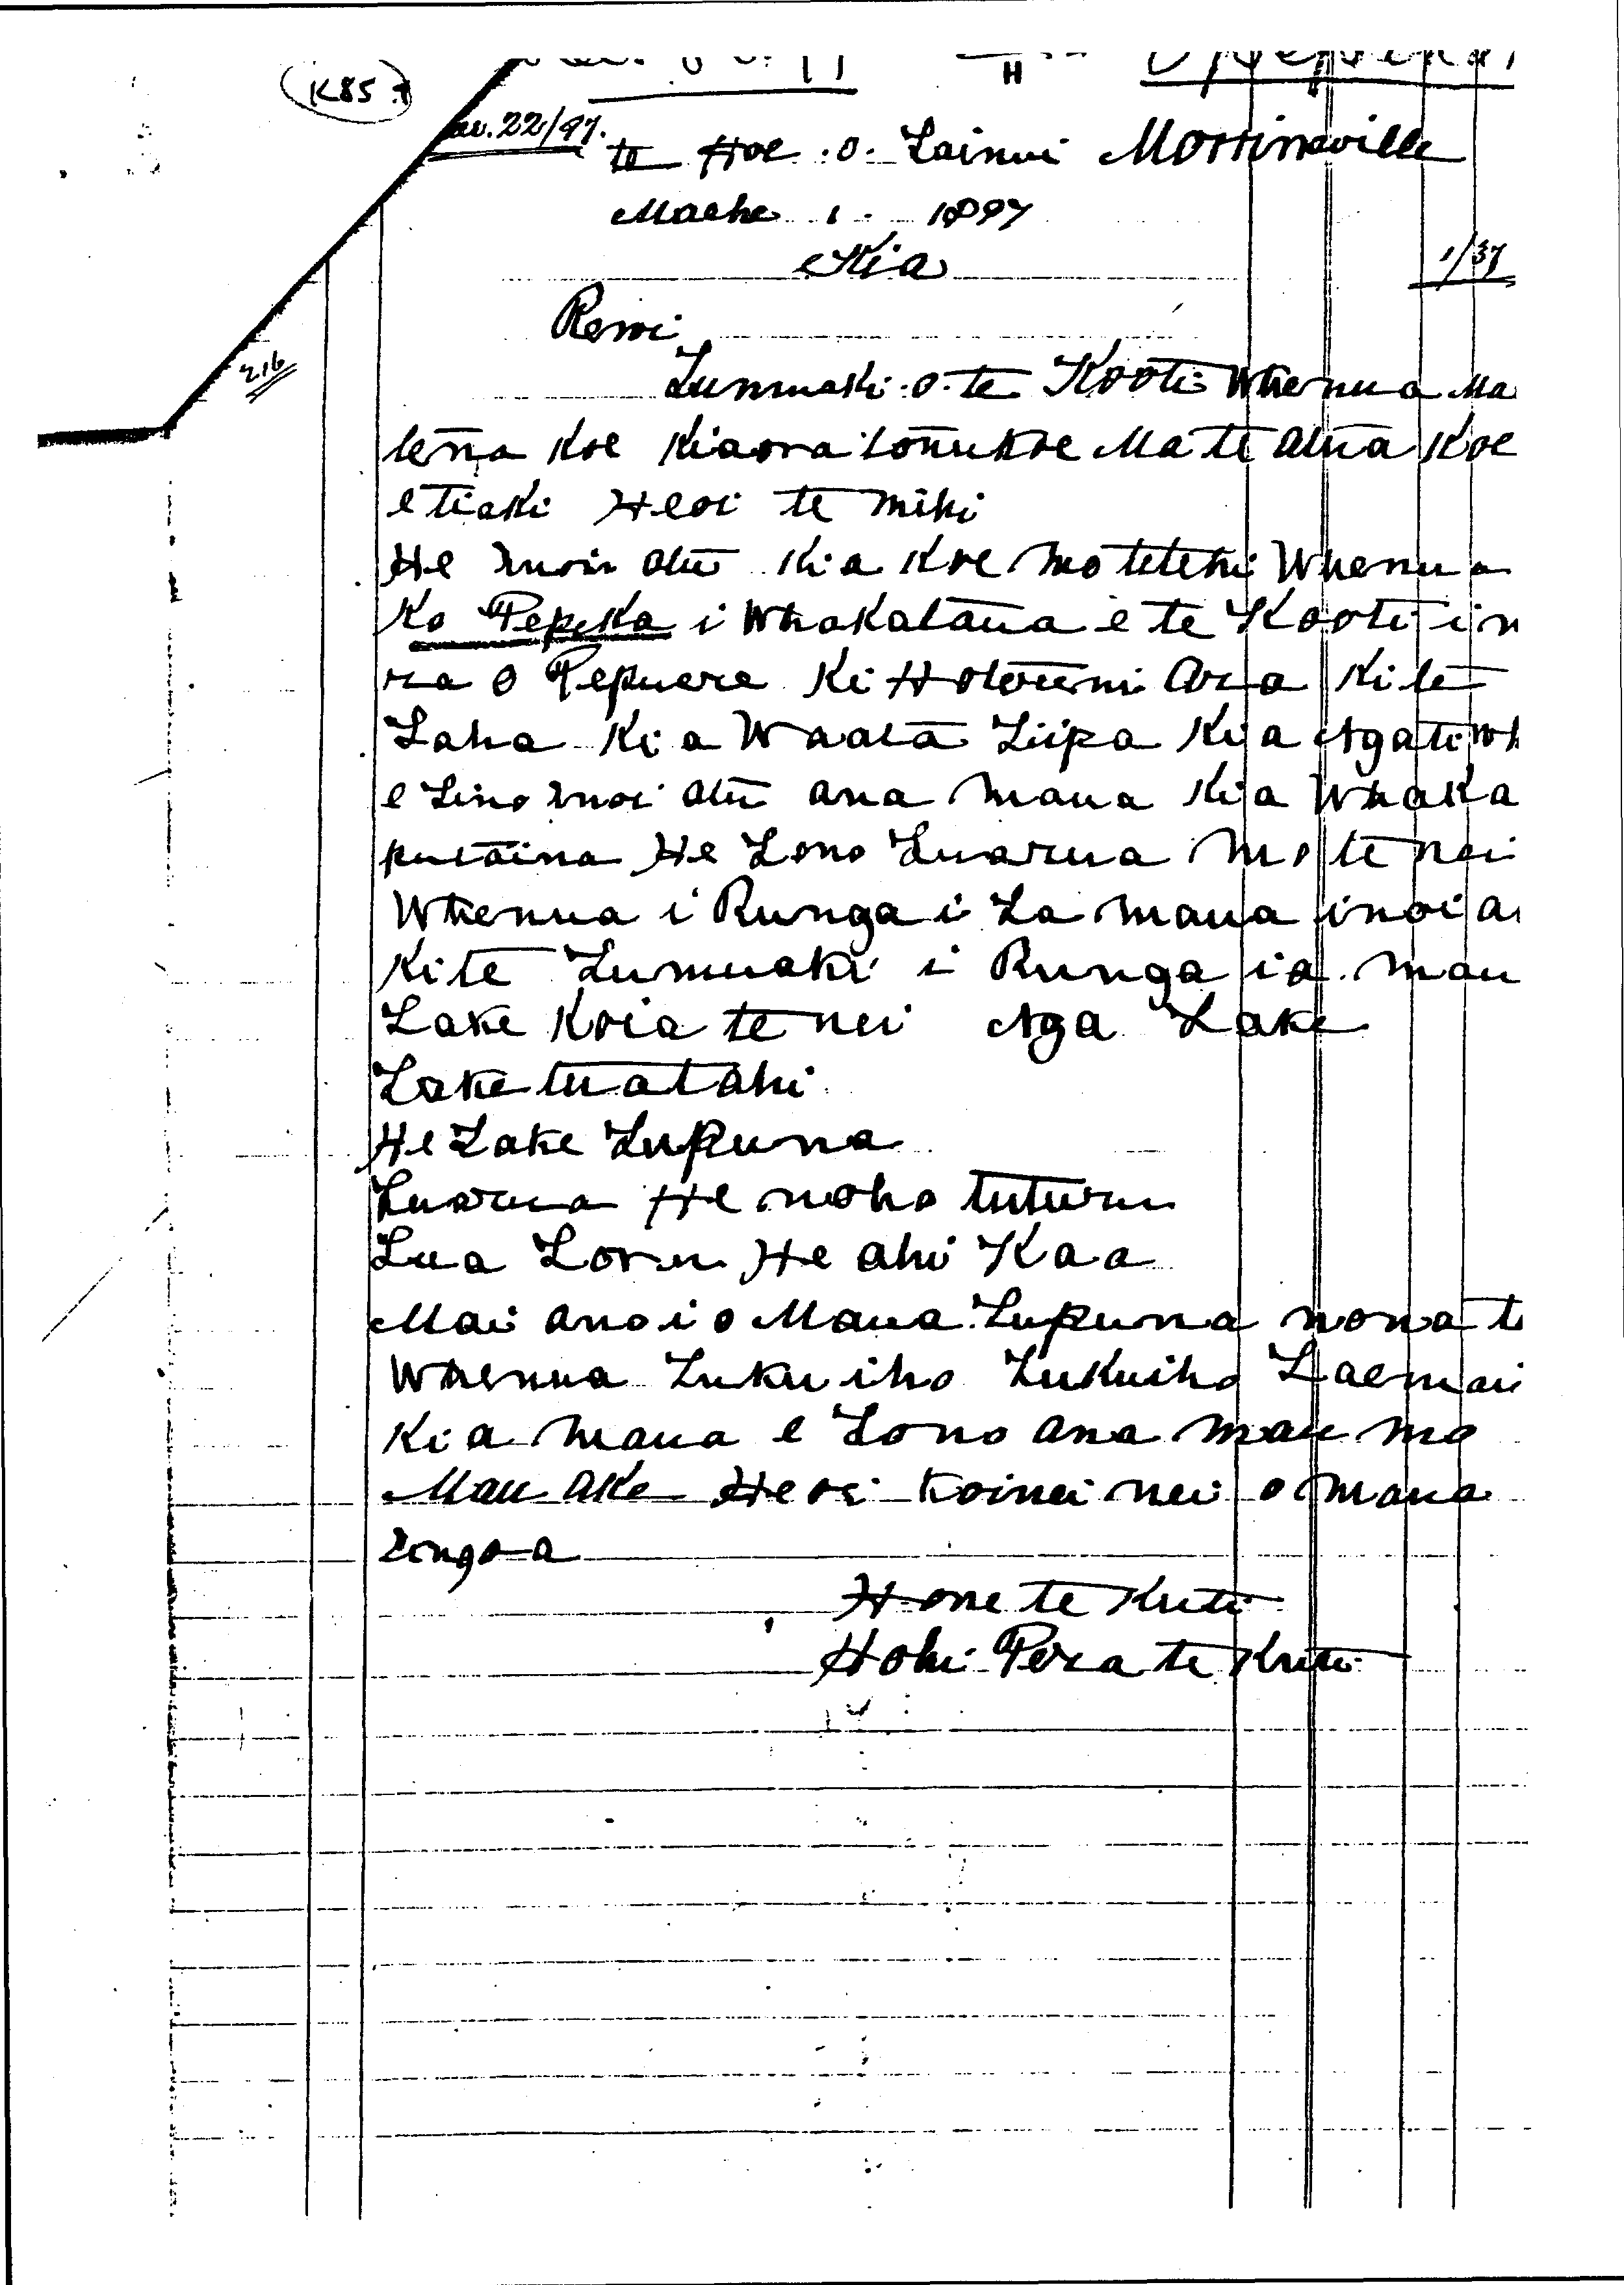 K85
22/97.
te Hoe .o. Tainui Morrinsville
Maehe 1 1897
Kia
1/37
Rewi
216
Tumuaki .o. te Kooti Whenua Ma
tena Koe Kiaora tonukoe Ma te atua Koe
e tiaki Heoi te mihi
He inoi atu Kia Koe mo tetehi Whenua
Ko Pepeka i Whakataua e te Kooti i n
ra o Pepuere Ki Hotereni Ara Kite
Taha Kia Waata Tiipa Kia Ngati Wh
e tino inoi atu ana maua Kia Whaka
putaina He Tono Tuarua mo te nei
Whenua i Runga i Ta maua inoi a
Kite Tumuaki i Runga i a mau
Take Koia te nei Nga Take
Take tuatahi
He Take Tupuna
Tuarua He noho tuturu
Tua Toru He ahi Kaa
Mai ano i o Maua Tupuna nona t
Whenua Tuku iho Tukuiho Tae mai
Kia maua e Tono ana mau mo
Mau ake Heoi Koinei nei o maua
Hone te Kuti
Hohi Pera te Kuti